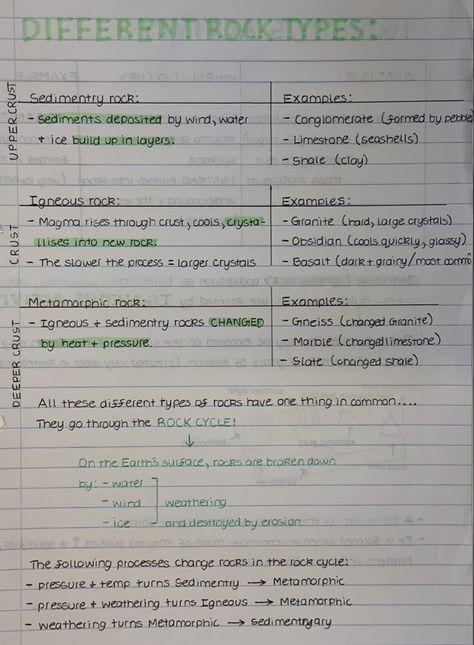 DIFFERENT ROCK TYPES:
UPPER CRUST
Sedimentry rock:
- sediments deposited by wind, water
+ ice build up in layers.
Examples:
- Conglomerate (formed by pebble
- Limestone (seashells)
- Shale (clay)
CRUST
Igneous rock:
- Magma rises through crust, cools, crysta-
llises into new rock.
- The slower the process = larger crystals
Examples:
- Granite (hard, large crystals)
- Obsidian (cools quickly, glassy)
- Basalt (dark + grainy/most commo
DEEPER CRUST
Metamorphic rock:
- Igneous + sedimentry rocks CHANGED
by heat + pressure.
Examples:
- Gneiss (changed Granite)
- Marble (changed limestone)
- Slate (changed shale)
All these different types of rocks have one thing in common....
They go through the ROCK CYCLE!
↓
On the Earth's surface, rocks are broken down
by: - water
- wind weathering
- ice and destroyed by erosion
The following processes change rocks in the rock cycle:
- pressure + temp turns Sedimentry → Metamorphic
- pressure + weathering turns Igneous → Metamorphic
- weathering turns Metamorphic → sedimentryary